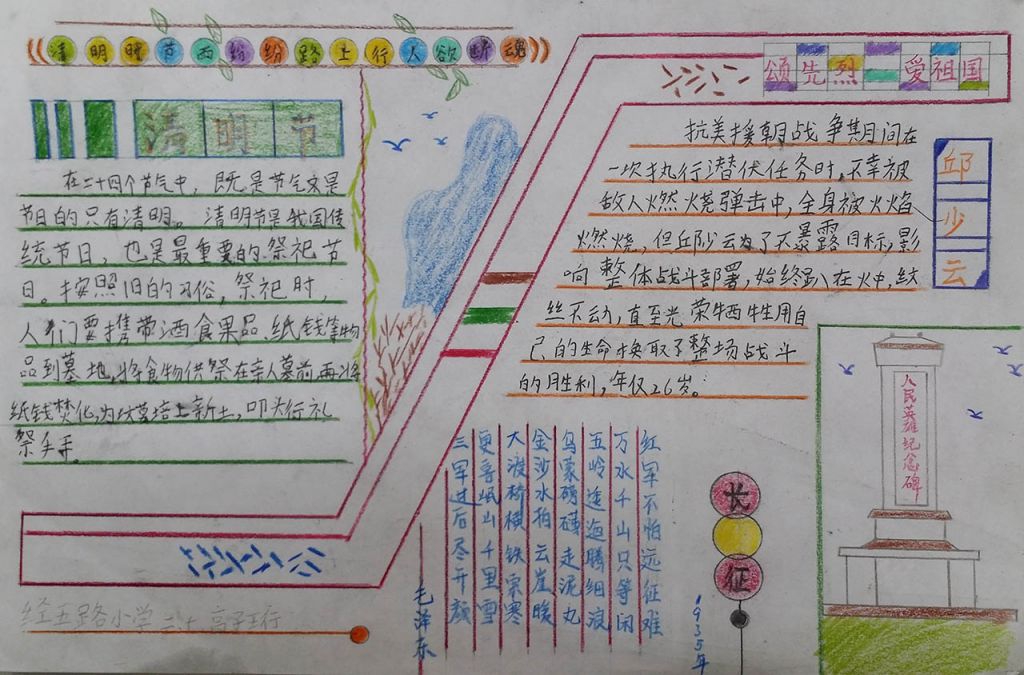 清明时节雨纷纷路上行人欲断魂
清明节
在二十四个节气中，既是节气又是
节日的只有清明。清明节是我国传
统节日，也是最重要的祭祀节
日。按照旧的习俗，祭祀时，
人们要携带酒食果品、纸钱等物
品到墓地，将食物供祭在亲人墓前，再将
纸钱焚化，为坟墓培上新土，叩头行礼
祭
颂先烈 爱祖国
抗美援朝战争期间在
一次执行潜伏任务时，不幸被
敌人燃烧弹击中，全身被火焰
燃烧，但丘少云为了不暴露目标，影
响整体战斗部署，始终趴在火中，纹
丝不动，直至光荣牺牲用自
己的生命换取了整场战斗
的胜利，年仅26岁。
邱少云
人民英雄纪念碑
长征
1935年
红军不怕远征难
万水千山只等闲
五岭逶迤腾细浪
乌蒙磅礴走泥丸
金沙水拍云崖暖
大渡桥横铁索寒
更喜岷山千里雪
三军过后尽开颜
毛泽东
经五路小学 二七